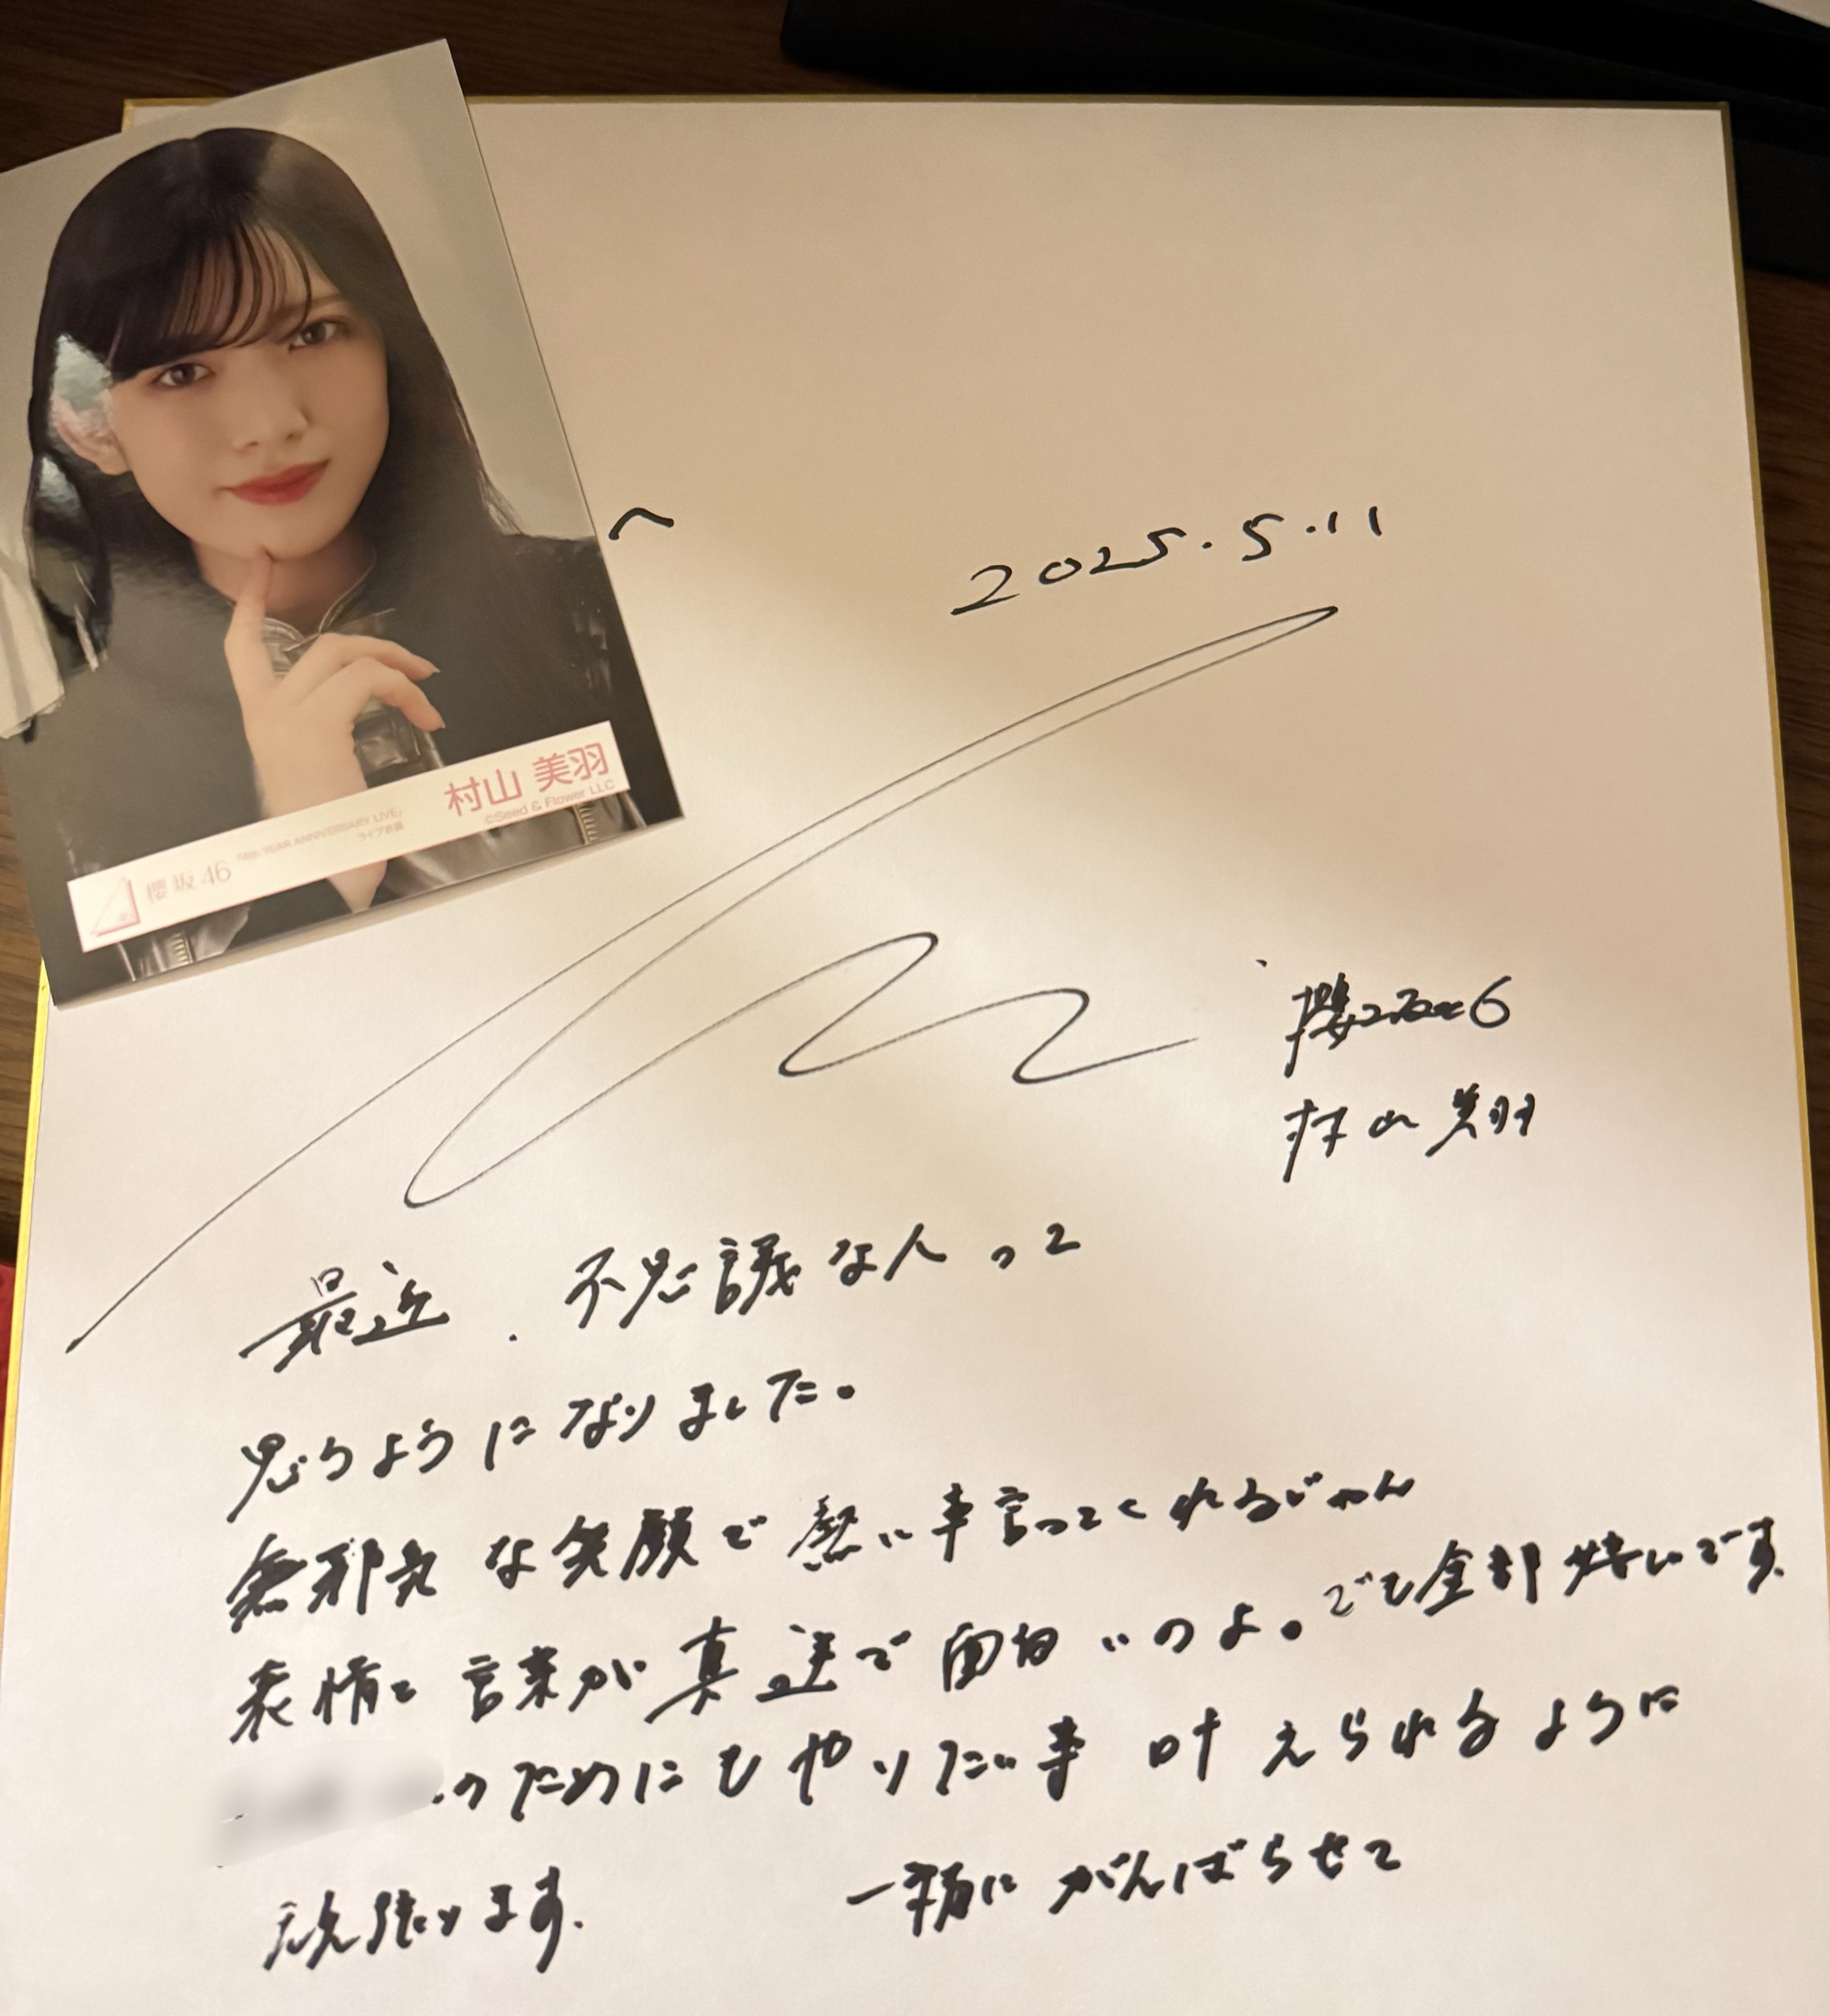 櫻坂46
『4th YEAR ANNIVERSARY LIVE』
ライブ衣装
村山 美羽
©Seed & Flower LLC
へ
2025.5.11
櫻坂46
村山美羽
最近、不思議な人って
思うようになりました。
無邪気な笑顔で熱い事言ってくれるじゃん
表情と言葉が真逆で面白いのよ。でも全部嬉しいです。
のためにもやりたい事 叶えられるように
頑張ります。 一緒にがんばらせて